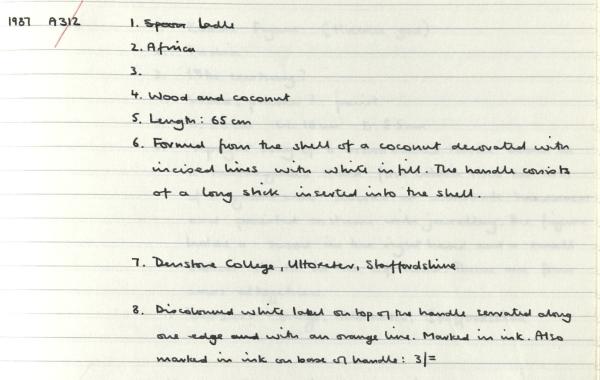 1987 A312 1. Spoon Ladle
2. Africa
3.
4. Wood and coconut
5. Length: 65 cm
6. Formed from the shell of a coconut decorated with
incised lines with white infill. The handle consists
of a long stick inserted into the shell.
7. Denstone College, Uttoxeter, Staffordshire
8. Discoloured white label on top of the handle serrated along
one edge and with an orange line. Marked in ink. Also
marked in ink on base of handle: 3/=